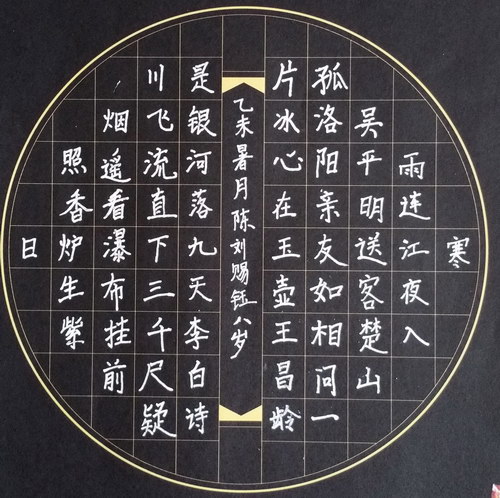 寒
雨连江夜入
吴平明送客楚山
孤洛阳亲友如相问一
片冰心在玉壶王昌龄
日
照香炉生紫
烟遥看瀑布挂前
川飞流直下三千尺疑
是银河落九天李白诗
乙未暑月陈刘赐钰八岁